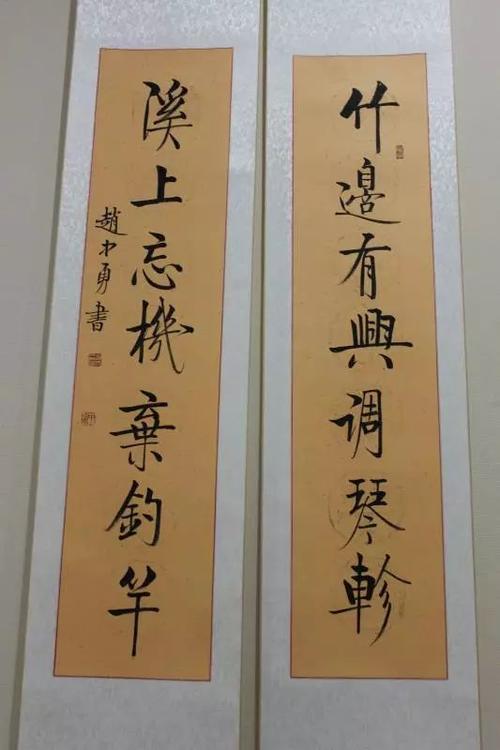 竹邊有興调琴軫
溪上忘機棄釣竿
趙才勇書